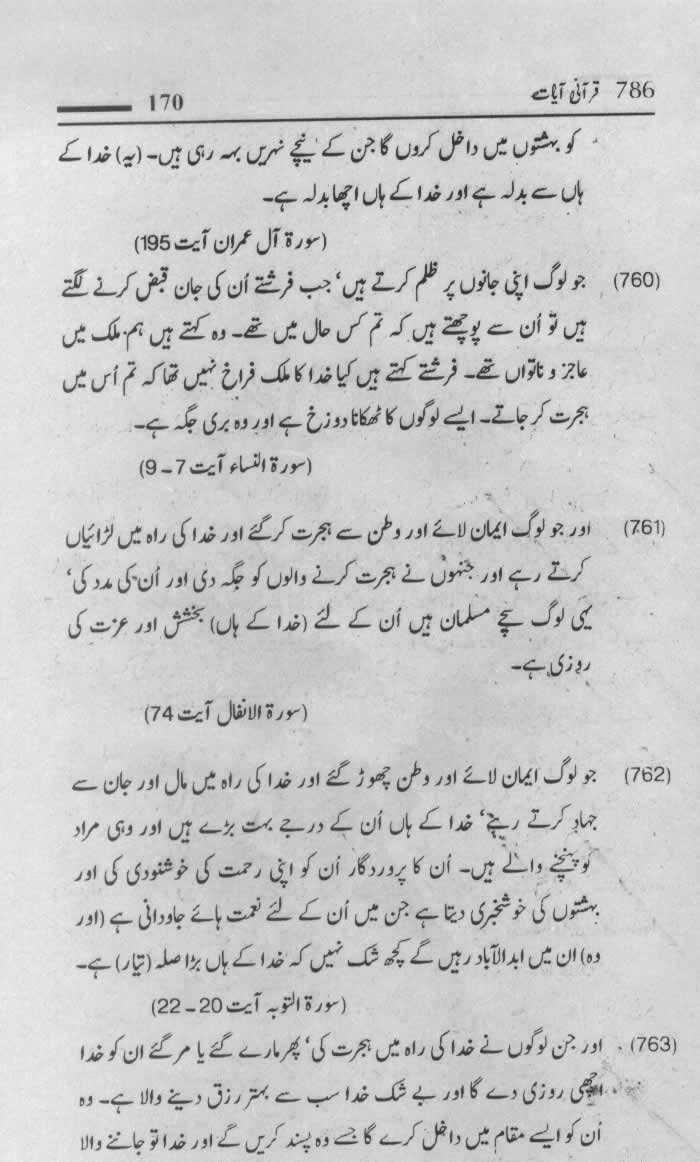 786 قرآنی آیات 170
کو بہشتوں میں داخل کروں گا جن کے نیچے نہریں بہہ رہی ہیں۔ (یہ) خدا کے
ہاں سے بدلہ ہے اور خدا کے ہاں اچھا بدلہ ہے۔
(سورۃ آل عمران آیت 195)
(760) جو لوگ اپنی جانوں پر ظلم کرتے ہیں‘ جب فرشتے اُن کی جان قبض کرنے لگتے
ہیں تو اُن سے پوچھتے ہیں کہ تم کس حال میں تھے۔ وہ کہتے ہیں ہم ملک میں
عاجز و ناتواں تھے۔ فرشتے کہتے ہیں کیا خدا کا ملک فراخ نہیں تھا کہ تم اُس میں
ہجرت کر جاتے۔ ایسے لوگوں کا ٹھکانا دوزخ ہے اور وہ بری جگہ ہے۔
(سورۃ النساء آیت 7 - 9)
(761) اور جو لوگ ایمان لائے اور وطن سے ہجرت کر گئے اور خدا کی راہ میں لڑائیاں
کرتے رہے اور جنہوں نے ہجرت کرنے والوں کو جگہ دی اور اُن کی مدد کی‘
یہی لوگ سچے مسلمان ہیں اُن کے لئے (خدا کے ہاں) بخشش اور عزت کی
روزی ہے۔
(سورۃ الانفال آیت 74)
(762) جو لوگ ایمان لائے اور وطن چھوڑ گئے اور خدا کی راہ میں مال اور جان سے
جہاد کرتے رہے‘ خدا کے ہاں اُن کے درجے بہت بڑے ہیں اور وہی مراد
کو پہنچنے والے ہیں۔ اُن کا پروردگار اُن کو اپنی رحمت کی خوشنودی کی اور
بہشتوں کی خوشخبری دیتا ہے جن میں اُن کے لئے نعمت ہائے جاودانی ہے (اور
وہ) ان میں ابدالآباد رہیں گے کچھ شک نہیں کہ خدا کے ہاں بڑا صلہ (تیار) ہے۔
(سورۃ التوبہ آیت 20 - 22)
(763) اور جن لوگوں نے خدا کی راہ میں ہجرت کی‘ پھر مارے گئے یا مر گئے ان کو خدا
اچھی روزی دے گا اور بے شک خدا سب سے بہتر رزق دینے والا ہے۔ وہ
اُن کو ایسے مقام میں داخل کرے گا جسے وہ پسند کریں گے اور خدا تو جاننے والا